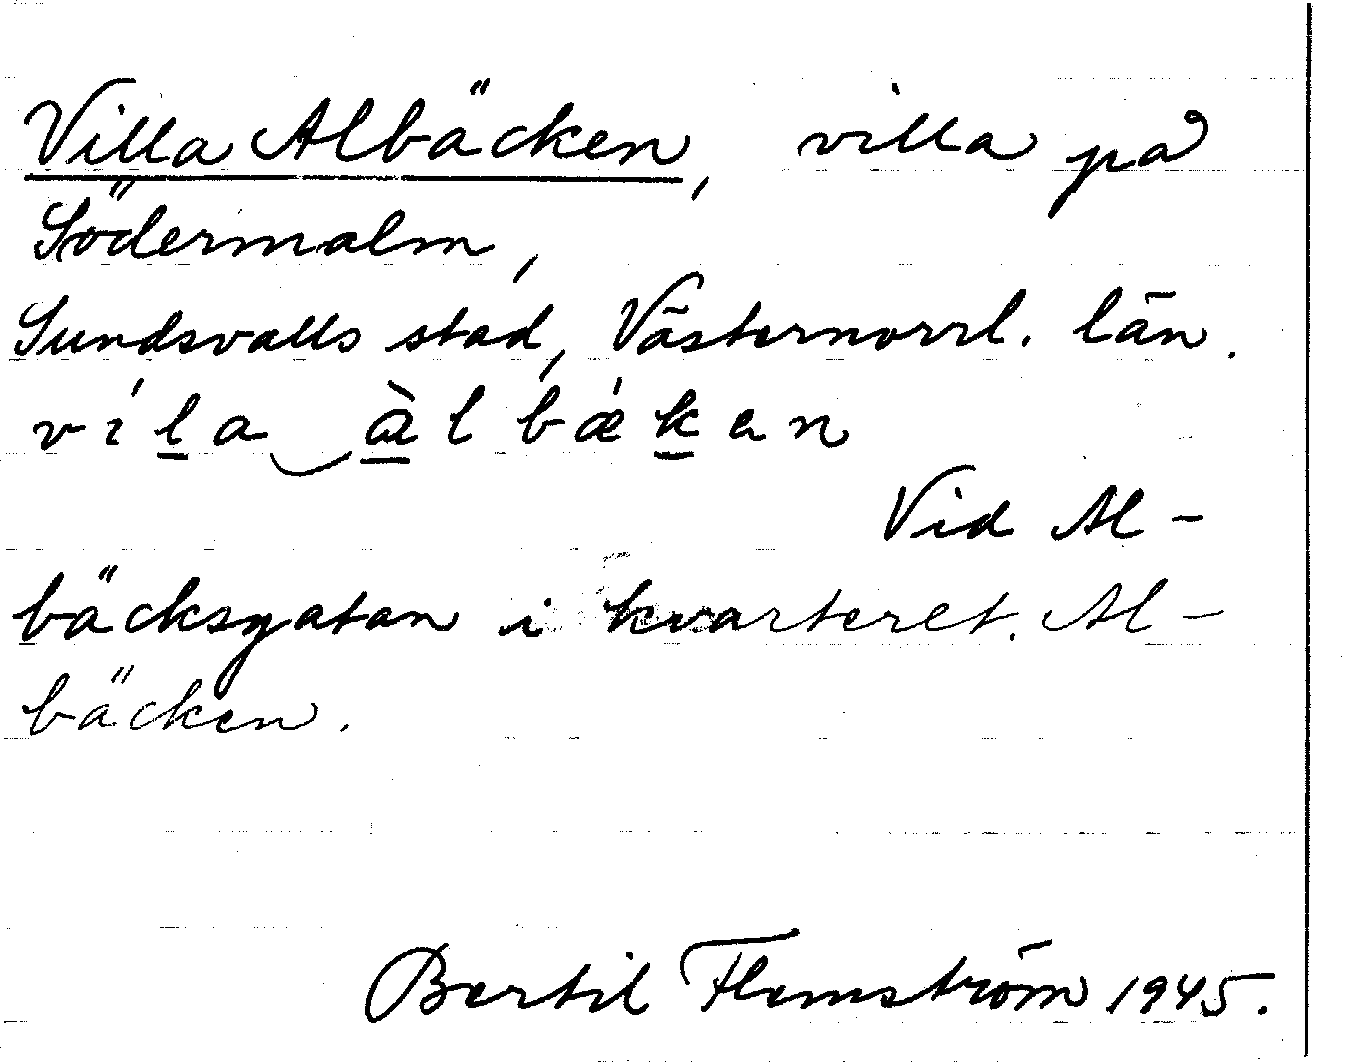 Villa Albäcken, villa på
Södermalm,
Sundsvalls stad, Västernorrl. län.
víla àlbǽken
Vid Al-
bäcksgatan i kvarteret. Al-
bäcken.
Bertil Flemström 1945.